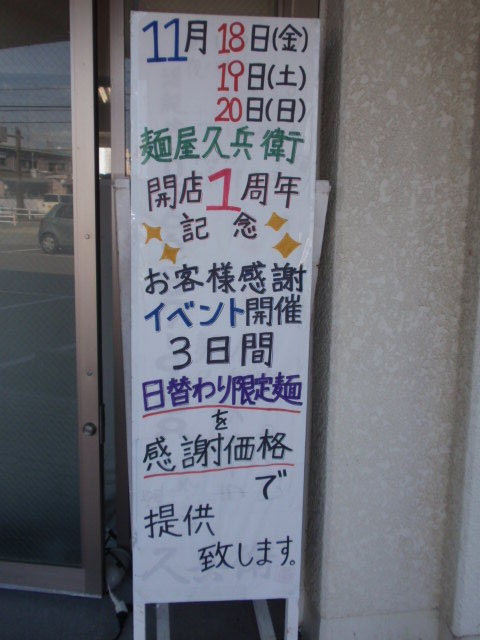 11月18日(金)
19日(土)
20日(日)
麺屋久兵衛
開店1周年
記念
お客様感謝
イベント開催
3日間
日替わり限定麺
を
感謝価格
で
提供
致します。